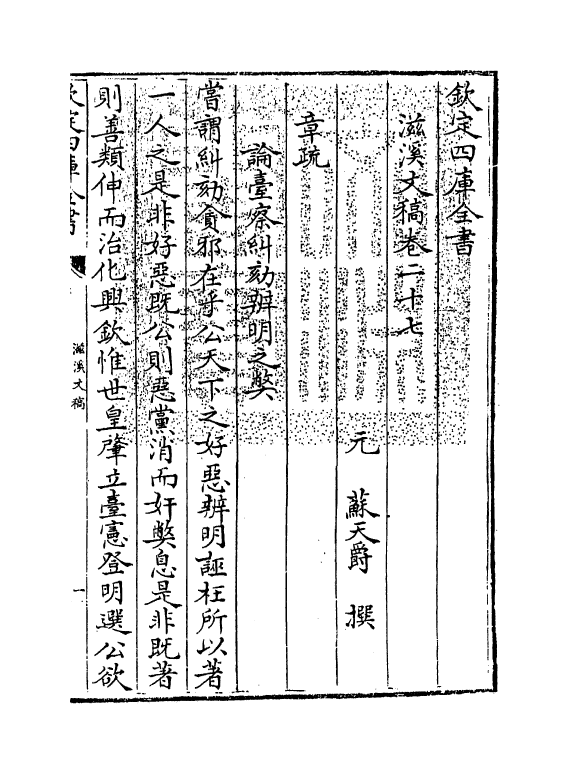 欽定四庫全書
滋溪文稿卷二十七
元　蘇天爵　撰
章疏
論臺察糾劾辨明之弊
嘗謂糾劾貪邪在乎公天下之好惡辨明誣枉所以著
一人之是非好惡既公則惡黨消而奸弊息是非既著
則善類伸而治化興欽惟世皇肇立臺憲登明選公欲
欽定四庫全書
滋溪文稿
一